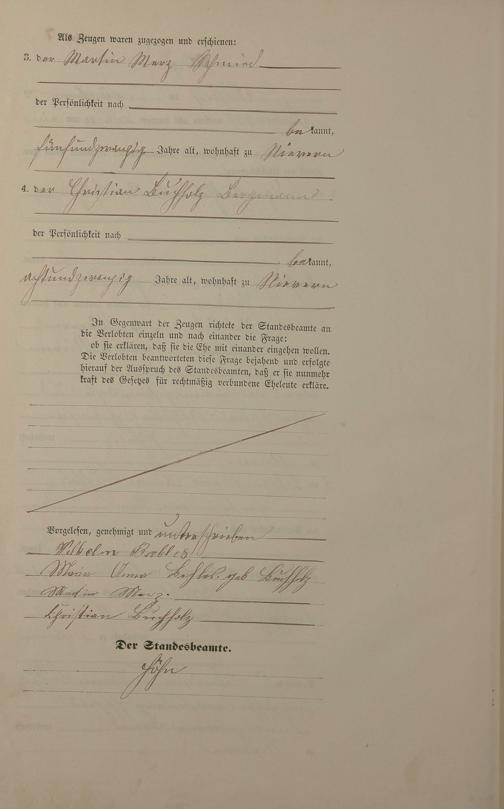 Als Zeugen waren zugezogen und erschienen:
3. der Martin Merz Schmied
der Persönlichkeit nach
be kannt,
fünfundzwanzig Jahre alt, wohnhaft zu Nievern
4. der Christian Buchholz Bergmann
der Persönlichkeit nach
be kannt,
achtundzwanzig Jahre alt, wohnhaft zu Nievern
In Gegenwart der Zeugen richtete der Standesbeamte an
die Verlobten einzeln und nach einander die Frage:
ob sie erklären, daß sie die Ehe mit einander eingehen wollen.
Die Verlobten beantworteten diese Frage bejahend und erfolgte
hierauf der Ausspruch des Standesbeamten, daß er sie nunmehr
kraft des Gesetzes für rechtmäßig verbundene Eheleute erkläre.
Vorgelesen, genehmigt und unterschrieben
Wilhelm
Anna geb Buchholz
Martin Merz.
Christian Buchholz
Der Standesbeamte.
Höhn